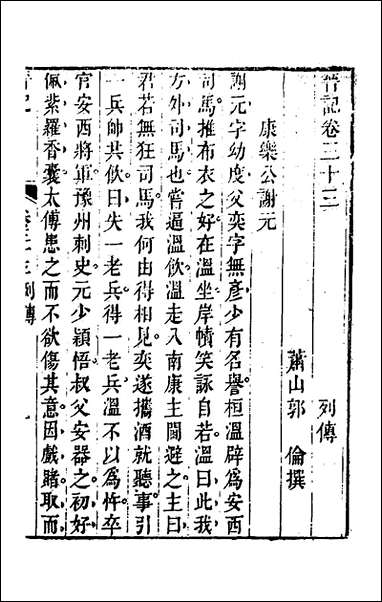 晉記卷三十三
列傳
蕭山郭倫撰
康樂公謝元
謝元字幼度父奕字無彥少有名譽桓溫辟爲安西
司馬推布衣之好在溫坐岸幘笑詠自若溫曰此我
方外司馬也嘗逼溫飲溫走入南康主閣避之主曰
君若無狂司馬我何由得相見奕遂攜酒就聽事引
一兵帥共飲曰失一老兵得一老兵溫不以爲忤卒
官安西將軍豫州刺史元少穎悟叔父安器之初好
佩紫羅香囊太傅患之而不欲傷其意因戲賭取而
晉記 卷三十三列傳 一